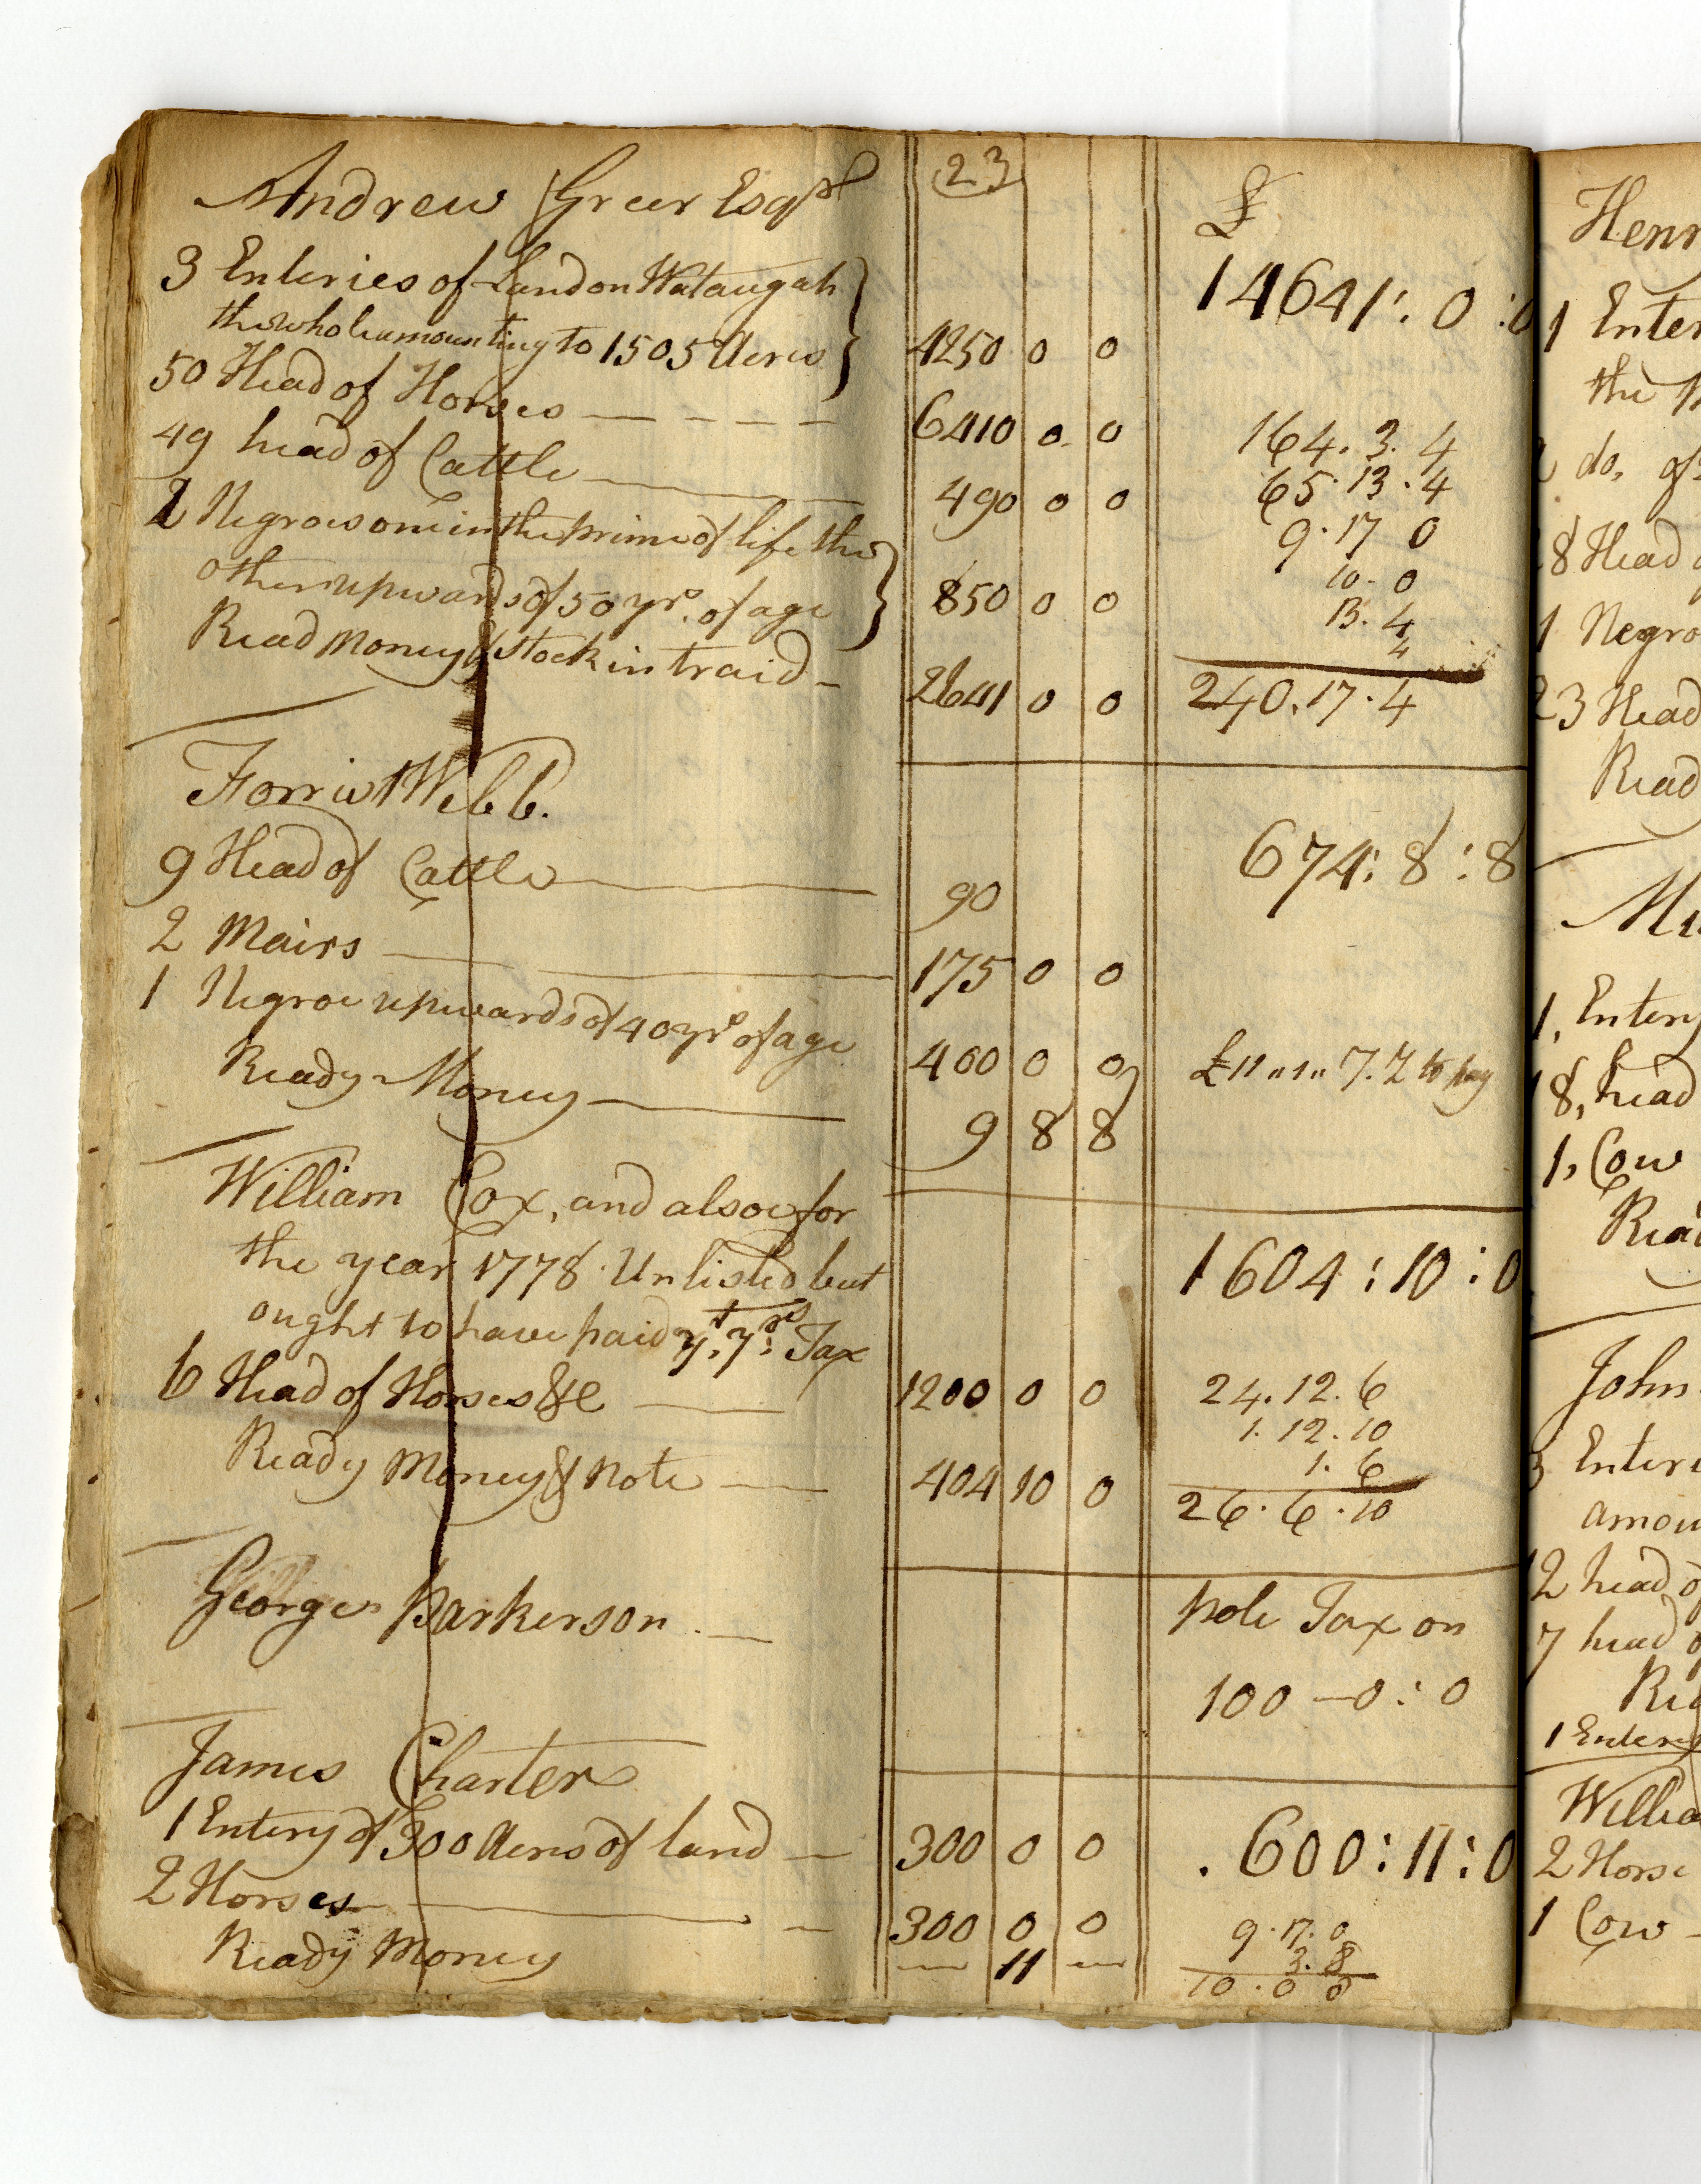 23
Andrew Greer Esqr £
3 Enteries of Land on Wataugah 14641: 0 :0
the whole amounting to 1505 Acres } 4250 0 0
50 Head of Horses 6410 0 0 164. 3. 4
49 head of Cattle 490 0 0 65. 13. 4
2 Negroes one in the prime of life the 9. 17 0
other upwards of 50 yrs. of age } 850 0 0 10. 0
13. 4
4
Read Money & Stock in traid 2641 0 0 240. 17. 4
Forrist Webb. 674: 8 : 8
9 Head of Cattle 90
2 Mairs 175 0 0
1 Negroe upwards of 40 yrs of age 400 0 0 £11 " 1 " 7. 2 to pay
Ready Money 9 8 8
William Cox, and alsoe for
the year 1778 Unlisted but 1604 : 10 : 0
ought to have paid yt. yrs: Tax
6 Head of Horses &c 1200 0 0 24. 12. 6
1. 12. 10
1. 6
Ready Money & Note 404 10 0 26. 6. 10
George Parkerson pole Tax on
100 — 0 : 0
James Charter
1 Entery of 300 Acres of land 300 0 0 . 600 : 11 : 0
2 Horses 300 0 0 9. 17. 0
3. 8
Ready Money — 11 — 10. 0 8
Henr
1 Enter
the
do, of
8 Head
1 Negro
23 Head
Read
1, Entery
8, head
1, Cow
Rea
John
3 Enteri
amou
12 head o
7 head o
Re
1 Entery
Willia
2 Horse
1 Cow